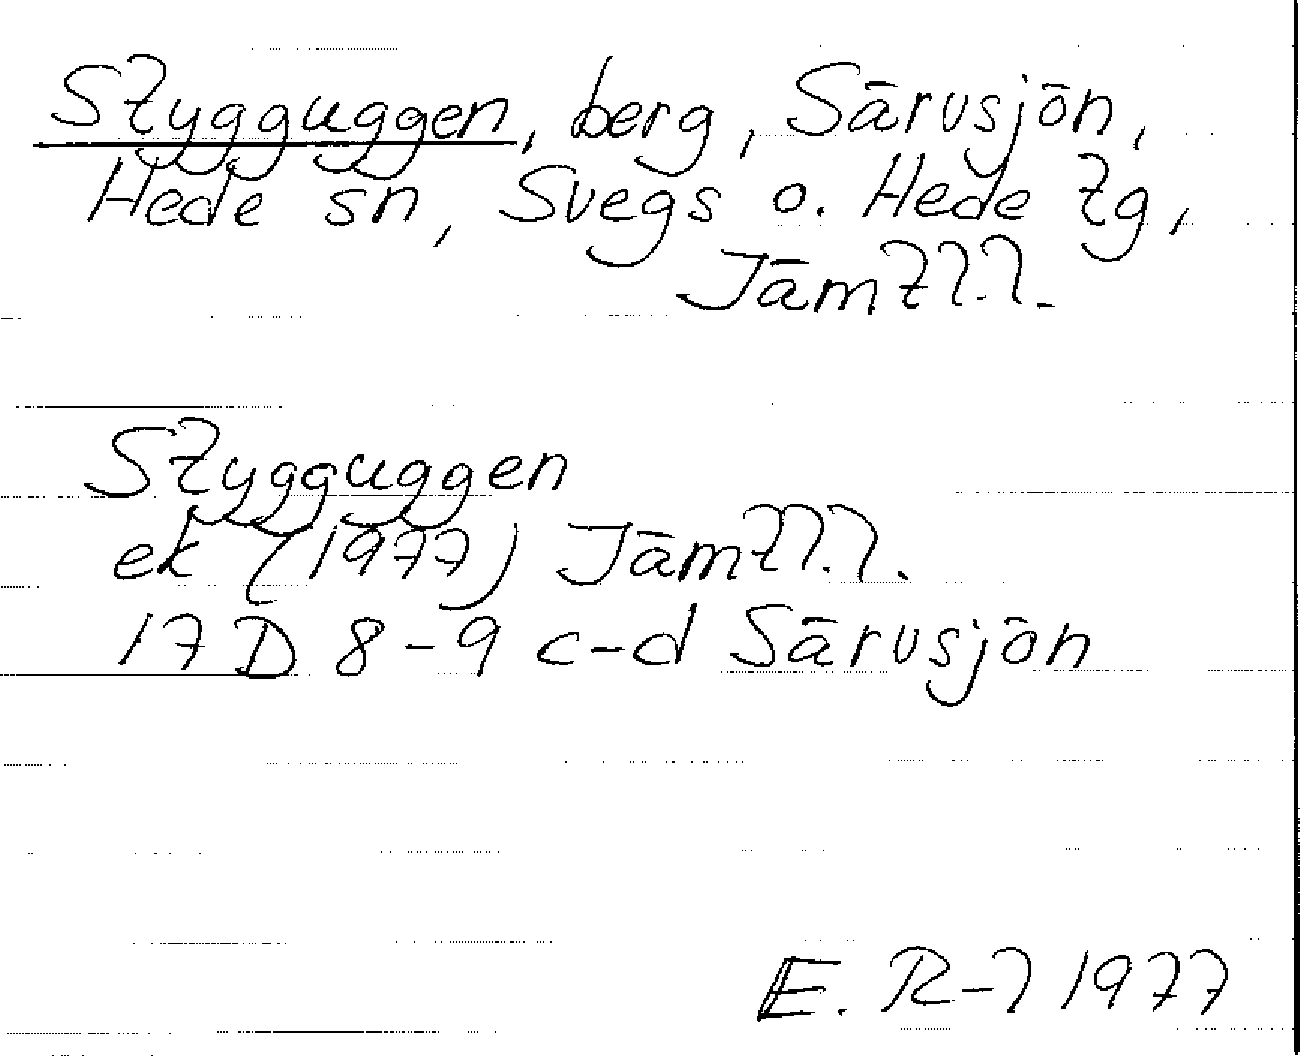 Stygguggen, berg, Särvsjön,
Hede sn, Svegs o. Hede tg,
Jämtl.l.
Stygguggen
ek (1977) Jämtl.l.
17 D 8-9 c-d Särvsjön
E. R-l 1977